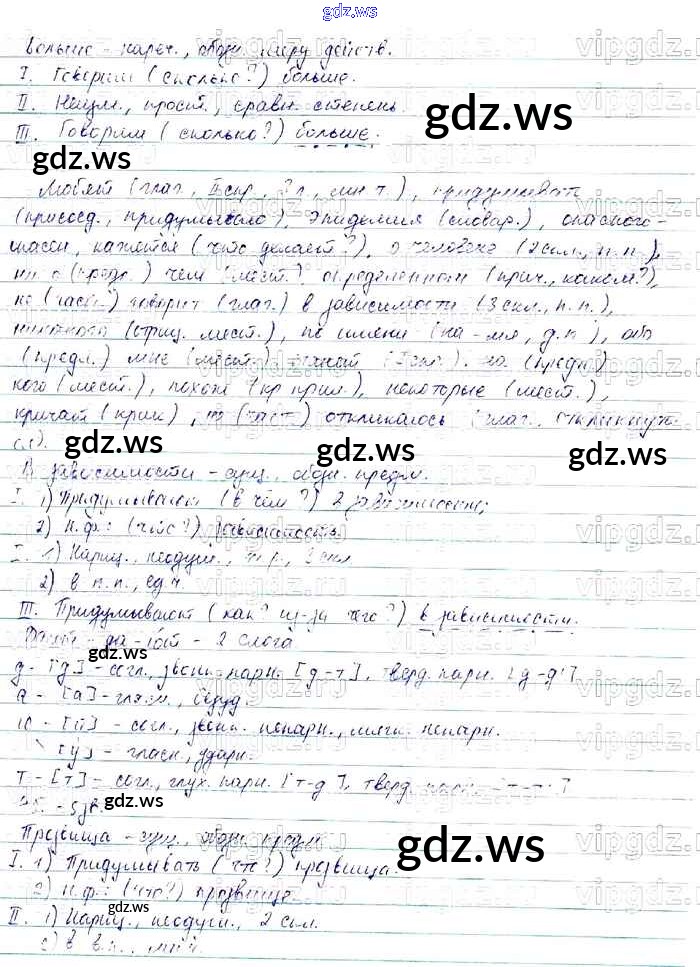 gdz.ws
Больше - нареч., обозн. меру действ.
I. Говорим (сколько?) больше.
II. Неизм., прост., сравн. степень.
III. Говорим (сколько?) больше.
gdz.ws
gdz.ws
Любят (глаг., II спр., 3 л., мн.ч.), придумывать
(присоед., придумывало), эпидемия (словар.), опасного-
опасен, кажется (что делает?), о человеке (2 скл., п.п.),
ни о (предл.) чём (мест.), определенном (прич., каком?),
не (част.) говорит (глаг.) в зависимости (3 скл., п.п.),
(отриц. мест.), по имени (на -мя, д.п.), обо
(предл.) мне (мест.) (предл.)
кого (мест.), похож (кр. прил.), некоторые (мест.),
кричат (крик), не (част.) откликалось (глаг., откликнуть-
ся).
gdz.ws
gdz.ws
gdz.ws
В зависимости - сущ., обозн. предм.
I. 1) Придумывают (в чём?) в зависимости;
2) н.ф.: (что?) зависимость
1) Нариц., неодуш., ж.р., 3 скл.
2) в п.п., ед.ч.
III. Придумывают (как? из-за чего?) в зависимости.
Дают - да-ют - 2 слога
gdz.ws
д - [д] - согл., звонк. парн. [д-т], тверд. парн. [д-д']
а - [а] - гласн., безуд.
ю - [й] - согл., звонк. непарн., мягк. непарн.
[у] - гласн., ударн.
т - [т] - согл., глух. парн. [т-д], тверд. парн. [т-т']
4б. - 5зв.
gdz.ws
Прозвища - сущ., обозн. предм.
gdz.ws
I. 1) Придумывать (что?) прозвища.
2) н.ф.: (что?) прозвище
gdz.ws
II. 1) Нариц., неодуш., 2 скл.
2) в в.п., мн.ч.